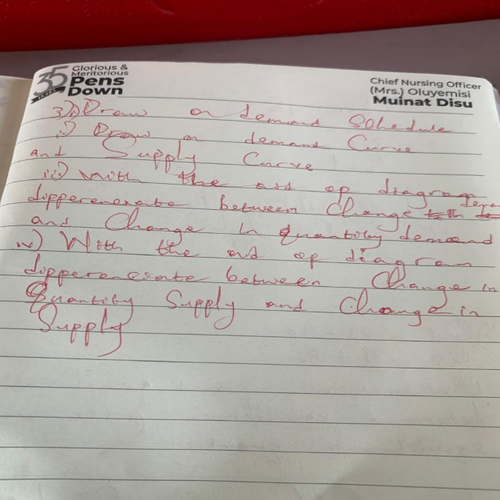 35 Glorious &
Meritorious
Pens
Down
Chief Nursing Officer
(Mrs.) Oluyemisi
Muinat Disu
Draw a demand Schedule
i) Draw a demand Curve
and Supply Curve
iii) With the aid of diagram
differenciate between Change
and Change in Quantity demand
iv) With the aid of diagram
differenciate between Change in
Quantity Supply and Change in
Supply